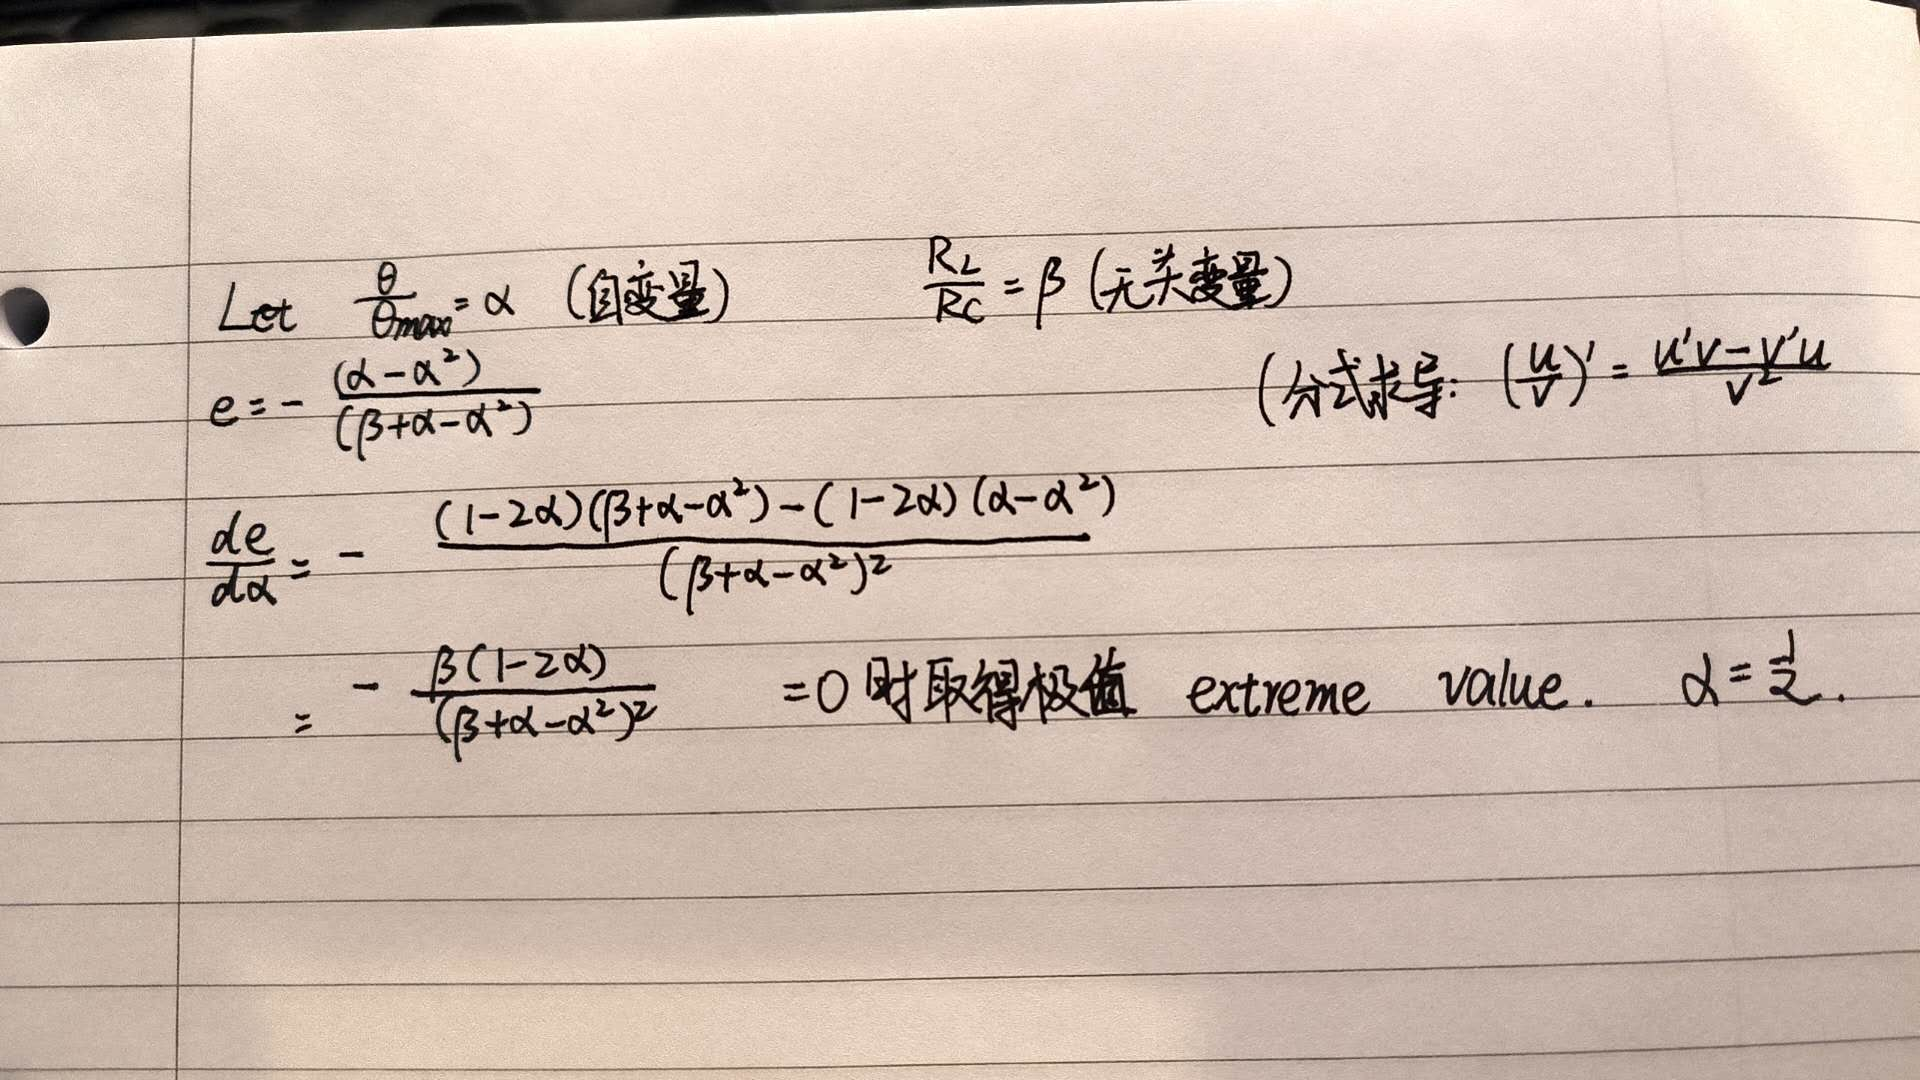 Let θ/θmax = α (自变量) R_L/R_C = β (无关变量)
e = - (α-α²)/(β+α-α²) (分式求导: (u/v)' = (u'v-v'u)/v²
de/dα = - ((1-2α)(β+α-α²)-(1-2α)(α-α²))/(β+α-α²)²
= - β(1-2α)/(β+α-α²)² =0时取得极值 extreme value. α=1/2.